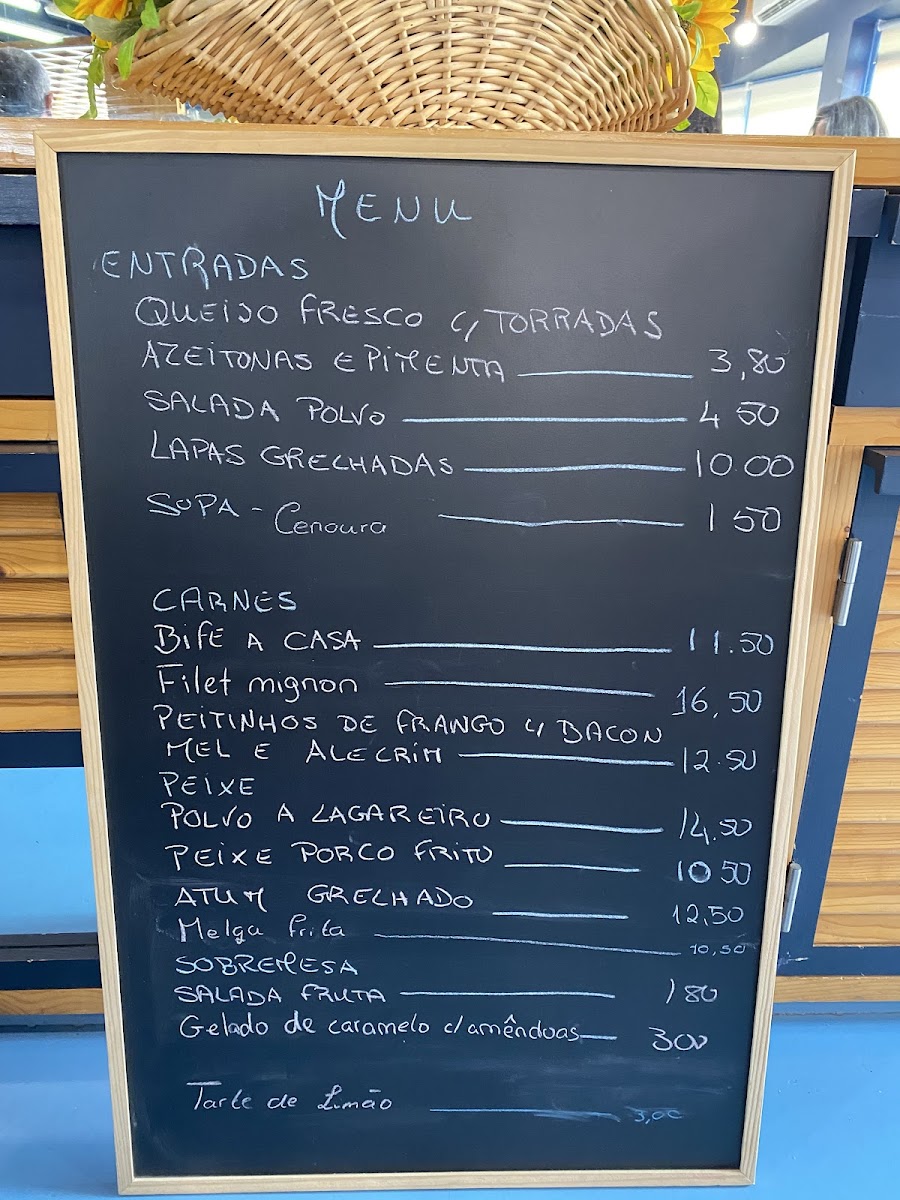 MENU
ENTRADAS
QUEIJO FRESCO C/ TORRADAS
AZEITONAS E PIMENTA 3,80
SALADA POLVO 4 50
LAPAS GRELHADAS 10.00
SOPA - Cenoura 1 50
CARNES
BIFE A CASA 11.50
Filet mignon 16,50
PEITINHOS DE FRANGO C/ BACON
MEL E ALECRIM 12.50
PEIXE
POLVO A LAGAREIRO 14.50
PEIXE PORCO FRITO 10 50
ATUM GRELHADO 12,50
Melga frita 10,50
SOBREMESA
SALADA FRUTA 1 80
Gelado de caramelo c/amêndoas 300
Tarte de Limão 3,00